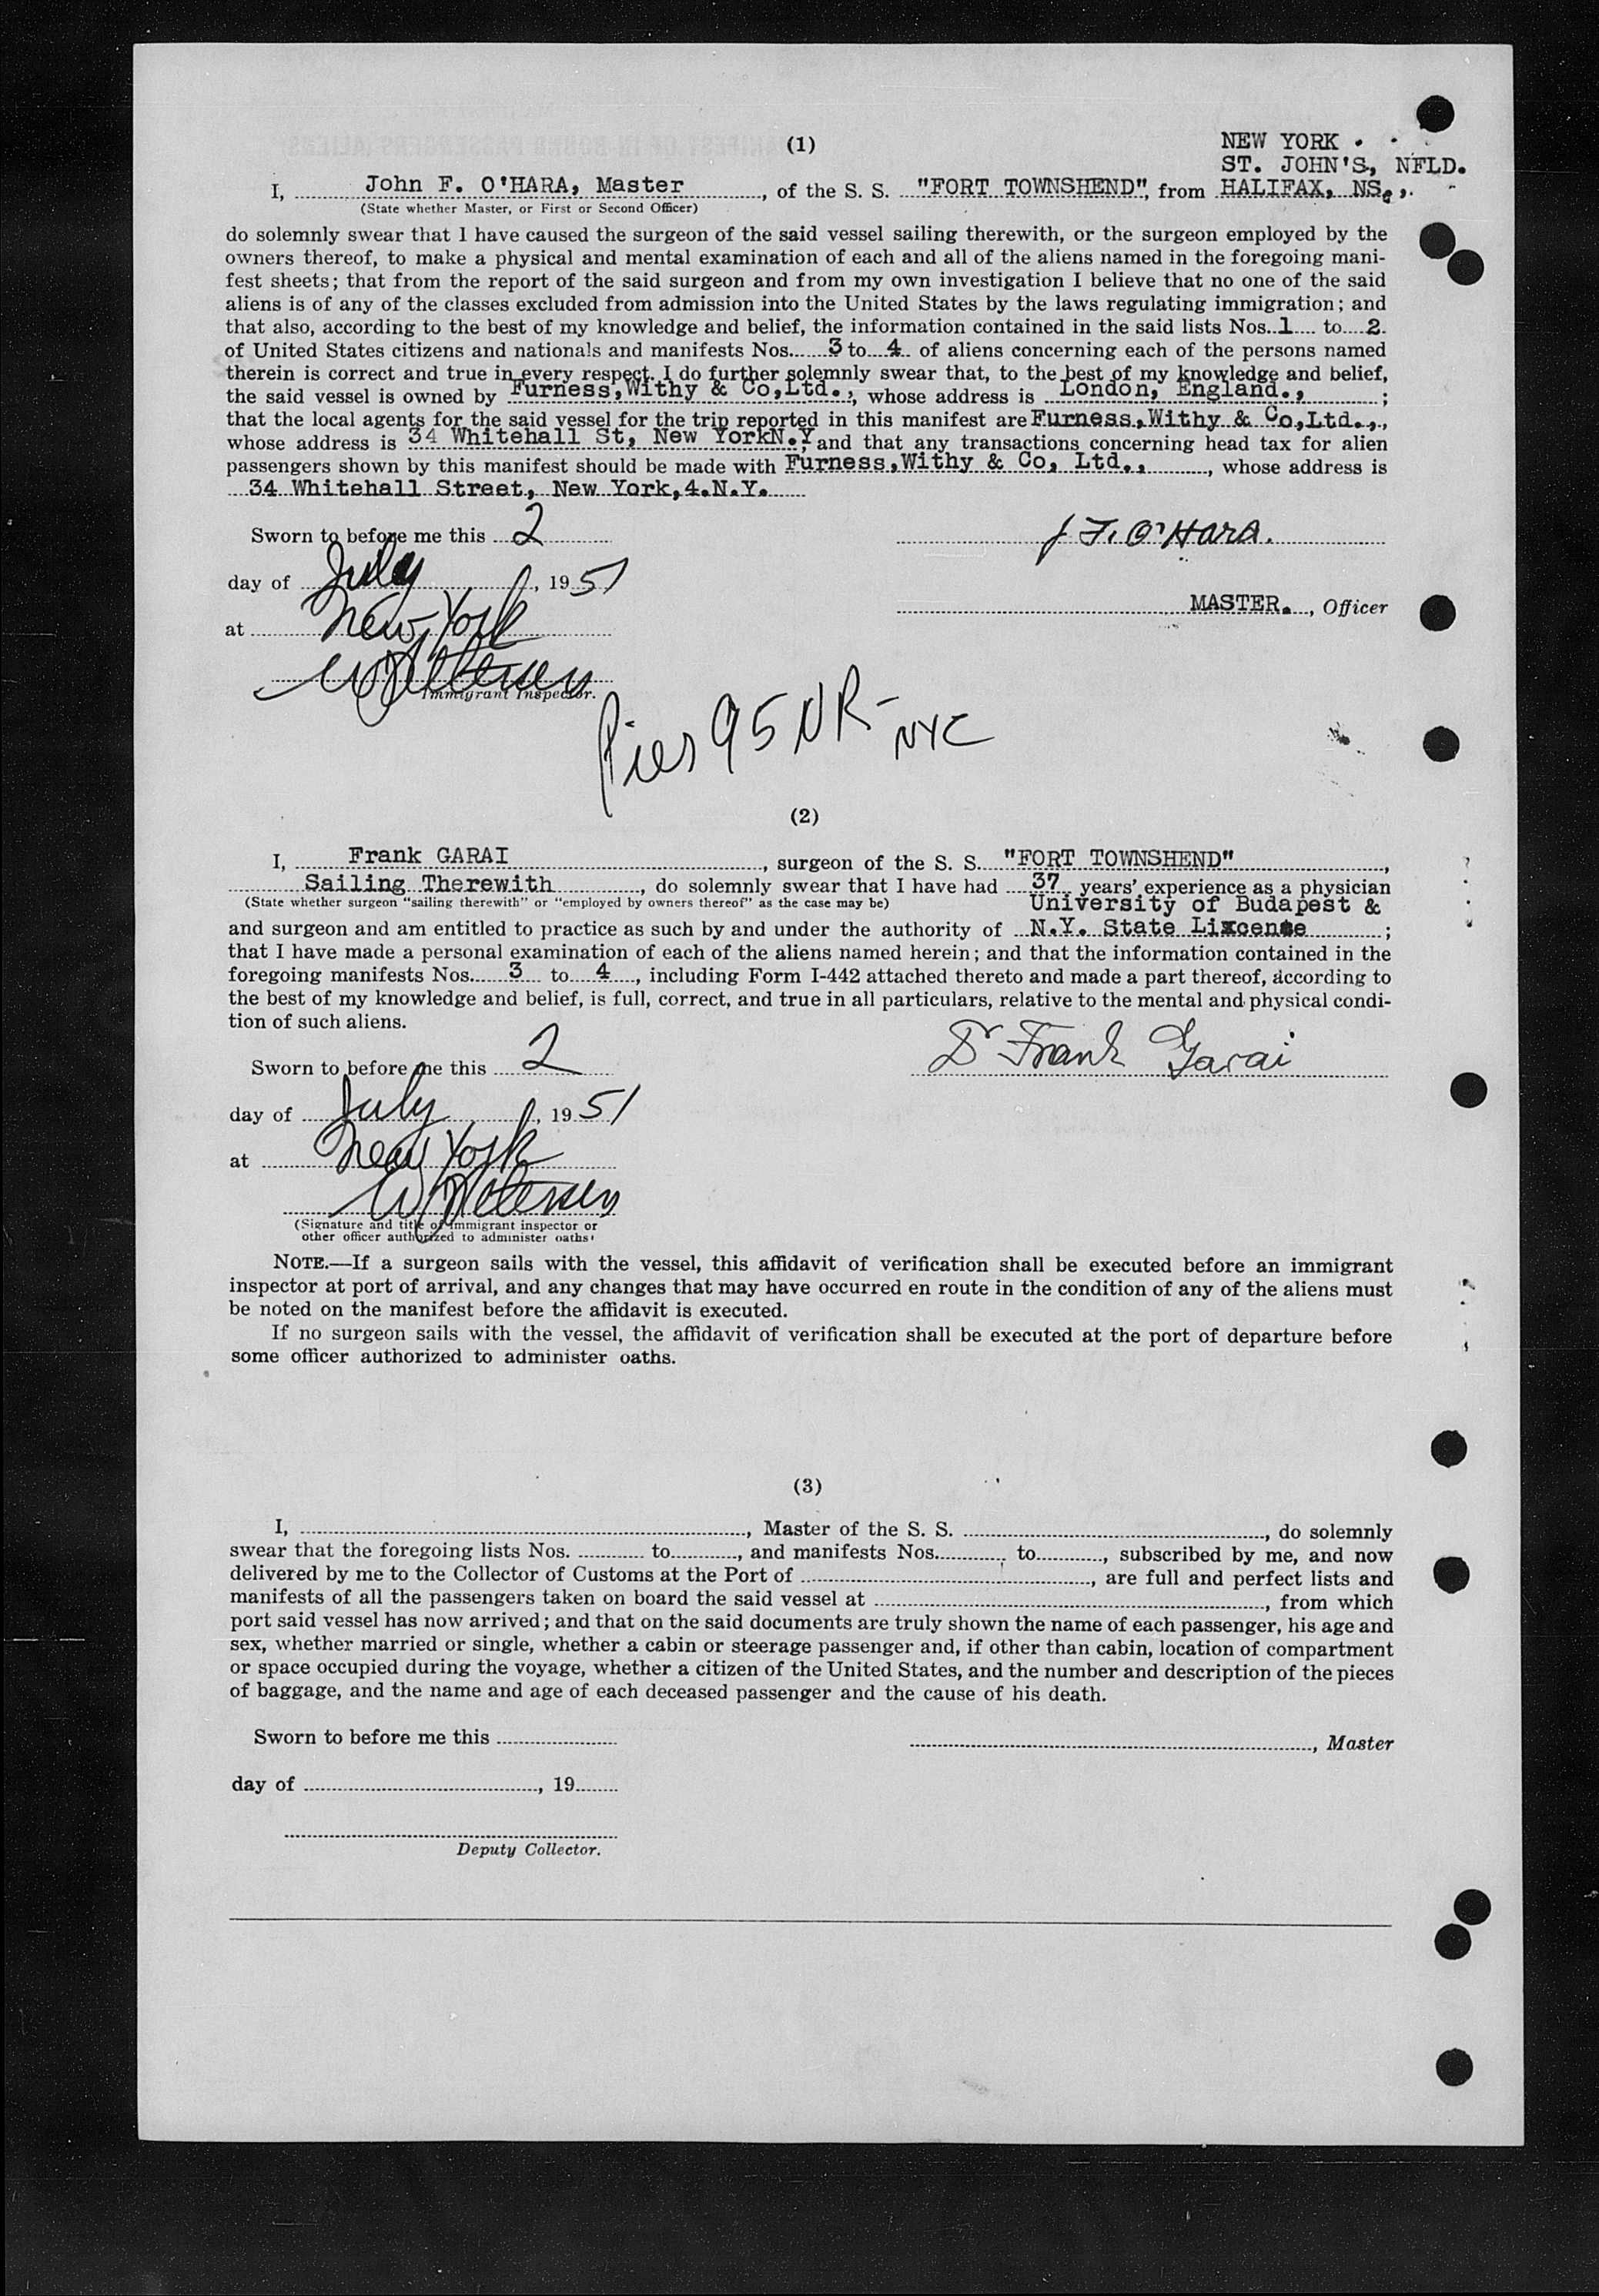 (1)
NEW YORK
ST. JOHN'S, NFLD.
I, John F. O'HARA, Master, of the S. S. "FORT TOWNSHEND", from HALIFAX, NS.,
(State whether Master, or First or Second Officer)
do solemnly swear that I have caused the surgeon of the said vessel sailing therewith, or the surgeon employed by the
owners thereof, to make a physical and mental examination of each and all of the aliens named in the foregoing mani-
fest sheets; that from the report of the said surgeon and from my own investigation I believe that no one of the said
aliens is of any of the classes excluded from admission into the United States by the laws regulating immigration; and
that also, according to the best of my knowledge and belief, the information contained in the said lists Nos. 1 to 2
of United States citizens and nationals and manifests Nos. 3 to 4 of aliens concerning each of the persons named
therein is correct and true in every respect. I do further solemnly swear that, to the best of my knowledge and belief,
the said vessel is owned by Furness,Withy & Co,Ltd.,, whose address is London, England.,;
that the local agents for the said vessel for the trip reported in this manifest are Furness,Withy & Co,Ltd.,.,
whose address is 34 Whitehall St, New YorkN.Y, and that any transactions concerning head tax for alien
passengers shown by this manifest should be made with Furness,Withy & Co, Ltd.,, whose address is
34 Whitehall Street, New York,4.N.Y.
Sworn to before me this 2
J F. O'Hara.
day of July, 1951
MASTER., Officer
at New York
W Petersen
Immigrant Inspector.
Pier 95 NR- NYC
(2)
I, Frank GARAI, surgeon of the S. S. "FORT TOWNSHEND",
Sailing Therewith, do solemnly swear that I have had 37 years' experience as a physician
(State whether surgeon "sailing therewith" or "employed by owners thereof" as the case may be)
University of Budapest &
and surgeon and am entitled to practice as such by and under the authority of N.Y. State Lixcense;
that I have made a personal examination of each of the aliens named herein; and that the information contained in the
foregoing manifests Nos. 3 to 4, including Form I-442 attached thereto and made a part thereof, according to
the best of my knowledge and belief, is full, correct, and true in all particulars, relative to the mental and physical condi-
tion of such aliens.
Dr Frank Garai
Sworn to before me this 2
day of July, 1951
at New York
W Petersen
(Signature and title of immigrant inspector or
other officer authorized to administer oaths)
NOTE.—If a surgeon sails with the vessel, this affidavit of verification shall be executed before an immigrant
inspector at port of arrival, and any changes that may have occurred en route in the condition of any of the aliens must
be noted on the manifest before the affidavit is executed.
If no surgeon sails with the vessel, the affidavit of verification shall be executed at the port of departure before
some officer authorized to administer oaths.
(3)
I, , Master of the S. S. , do solemnly
swear that the foregoing lists Nos. to , and manifests Nos. to , subscribed by me, and now
delivered by me to the Collector of Customs at the Port of , are full and perfect lists and
manifests of all the passengers taken on board the said vessel at , from which
port said vessel has now arrived; and that on the said documents are truly shown the name of each passenger, his age and
sex, whether married or single, whether a cabin or steerage passenger and, if other than cabin, location of compartment
or space occupied during the voyage, whether a citizen of the United States, and the number and description of the pieces
of baggage, and the name and age of each deceased passenger and the cause of his death.
Sworn to before me this
, Master
day of , 19
Deputy Collector.